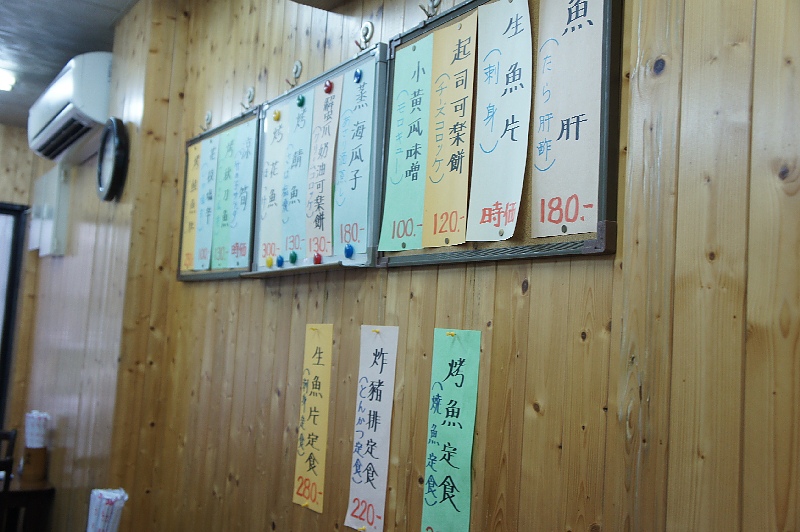 魚肝
(たら肝酢)
180.-
生魚片
(刺身)
時価
起司可樂餅
(チーズコロッケ)
120.-
小黃瓜味噌
(モロキュー)
100.-
蒸海瓜子
180.-
蟹爪奶油可樂餅
130.-
烤鯖魚
130.-
烤花魚
300.-
涼筍
時価
生魚片定食
(刺身定食)
280.-
炸豬排定食
(とんかつ定食)
220.-
烤魚定食
(焼魚定食)